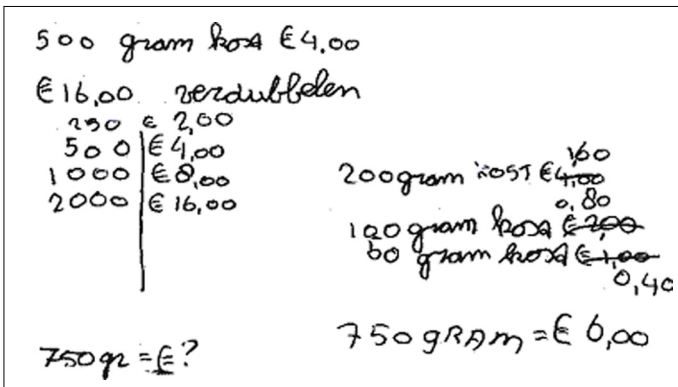 500 gram kost €4.00
€16,00 verdubbelen
250 € 2,00
500 €4,00
1000 €8,00
2000 €16,00
750gr = €?
1,60
200gram KOST €4,00
0,80
100gram kost €2,00
50 gram kost €1,00
0,40
750gRAm = € 6,00